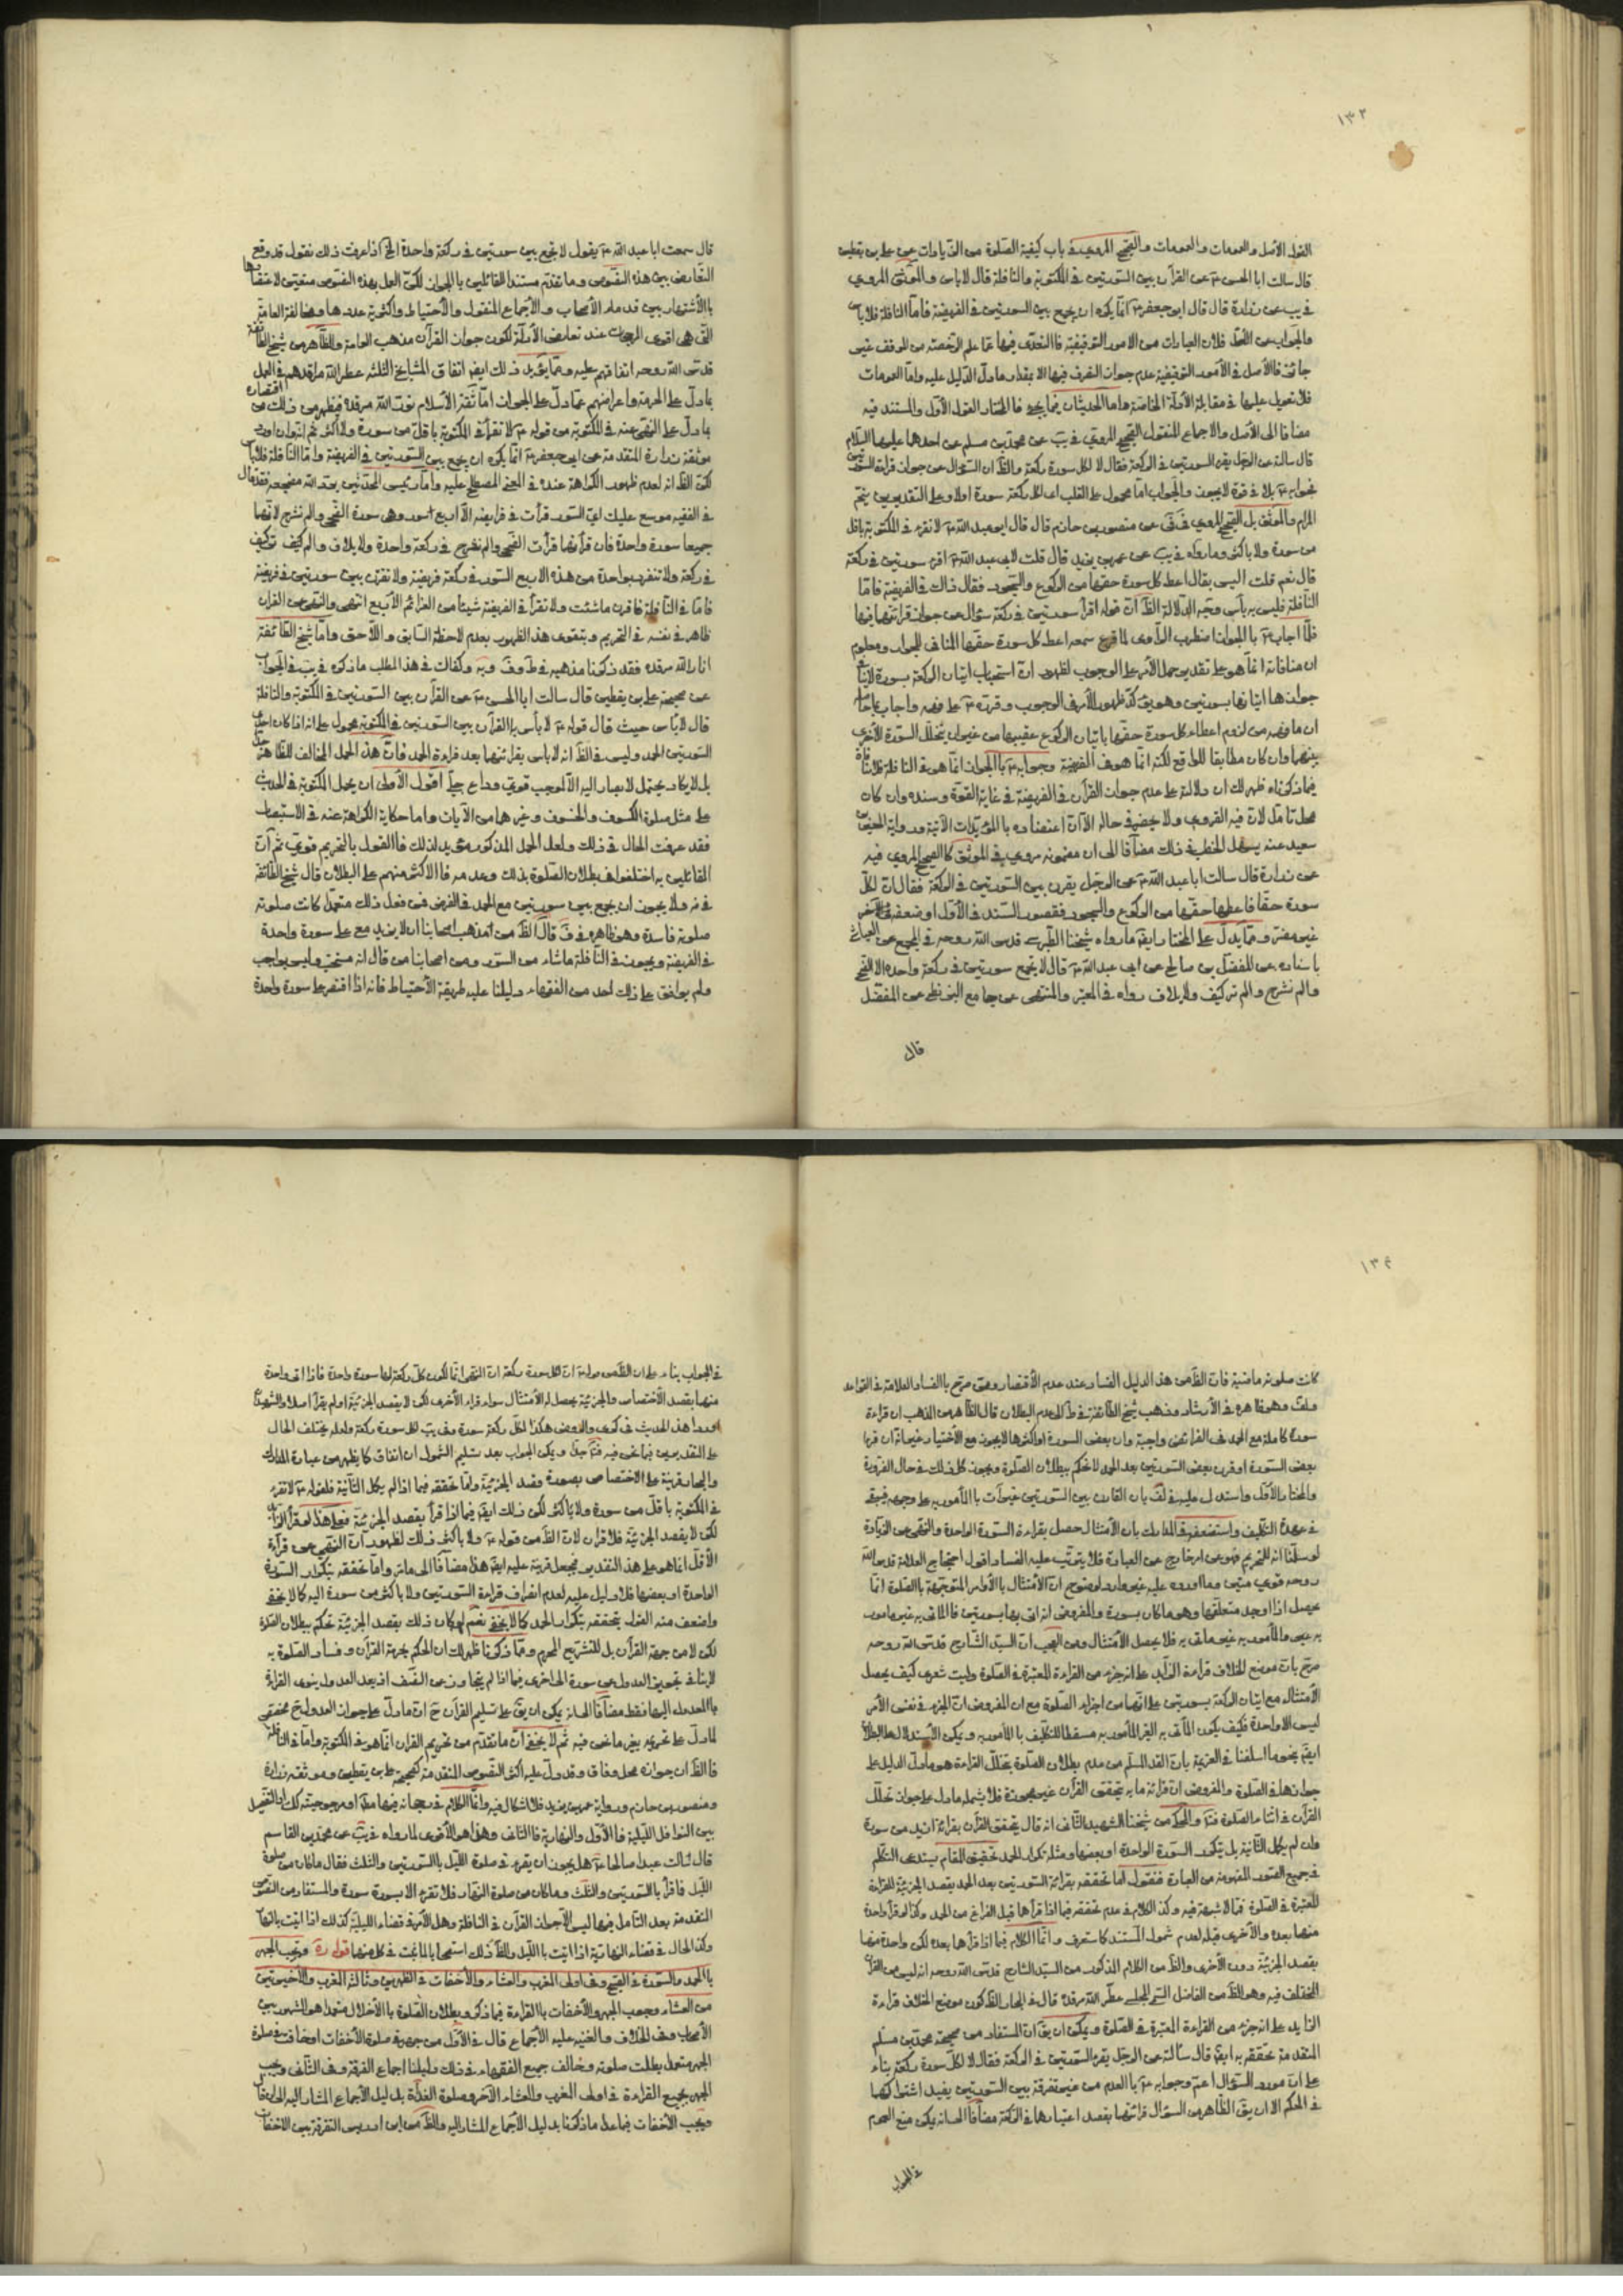 ١٣٢
القول الأصل والعمومات والعمومات والصحيح المروي في باب كيفية الصلوة من الزيادات عن علي بن يقطين
قال سالت ابا الحسن ع عن القرآن بين السورتين في المكتوبة والنافلة قال لاباس والموثق المروي
في يب عن زرارة قال قال ابو جعفر ع انما يكره ان يجمع بين السورتين في الفريضة فاما النافلة فلاباس
والجواب عن الأصل فلان العبادات من الامور التوقيفية فالتعدي فيها عما علم الرخصة من الموقف غير
جائز فالأصل في الأمور التوقيفية عدم جواز التصرف فيها الا بمقدار ما دل الدليل عليه واما العمومات
فلا تعويل عليها في مقابلة الأدلة الخاصة واما الحديثان فيما يجئ فالمختار القول الأول والمستند فيه
مضافا الى الأصل والاجماع المنقول الصحيح المروي في يب عن محمد بن مسلم عن احدهما عليهما السلام
قال سالته عن الرجل يقرء السورتين في الركعة فقال لا لكل سورة ركعة والظ ان السؤال عن جواز قراءة السورتين
فجوابه ع بلا في قوة لا يجوز والجواب اما محمول على القلب اى لكل ركعة سورة اولا وعلى التقديرين يتم
المرام والموثق بل الصحيح المروي في في عن منصور بن حازم قال قال ابو عبد الله ع لا تقرء في المكتوبة باقل
من سورة ولا باكثر وما رواه في يب عن عمر بن يزيد قال قلت لابي عبد الله ع اقرء سورتين في ركعة
قال نعم قلت اليس يقال اعط كل سورة حقها من الركوع والسجود فقال ذاك في الفريضة فاما
النافلة فليس به بأس وجه الدلالة الظ ان قوله اقرأ سورتين في ركعة سؤال عن جواز قرائتهما فيها
فلما اجاب ع بالجواز اضطرب الراوي لما قرع سمعه اعط كل سورة حقها المنافي للجواز ومعلوم
ان منافاته انما هو على تقدير حمل الأمر على الوجوب لظهور ان استحباب اتيان الركعة بسورة لاينافي
جوازها اتيانها بسورتين وهو يؤكد ظهور الأمر في الوجوب وقرره ع على فهمه واجاب بما حاصله
ان ما فهمه من لزوم اعطاء كل سورة حقها باتيان الركوع عقيبها من غير ان يتخلل السورة الأخرى
بينهما وان كان مطابقا للواقع لكنه انما هو في الفريضة وجوابه ع بالجواز انما هو في النافلة فلا منافاة
فيما ذكرناه ظهر لك ان دلالته على عدم جواز القرآن في الفريضة في غاية القوة وسنده وان كان
محل تأمل لان فيه القروي ولا يحضرني حاله الآن اعتضاده بالمؤيدات الآتية ورواية الحسين بن
سعيد عنه يسهل الخطب في ذلك مضافا الى ان مضمونه مروي في الموثق كالصحيح المروي فيه
عن زرارة قال سالت ابا عبد الله ع عن الرجل يقرن بين السورتين في الركعة فقال ان لكل
سورة حقا فاعطها حقها من الركوع والسجود فقصور السند في الأول او ضعفه في الآخر
غير مضر ومما يدل على المختار ايضا ما رواه شيخنا الطبرسي قدس الله روحه في المجمع عن العياشي
باسناده عن المفضل بن صالح عن ابي عبد الله ع قال لا تجمع سورتين في ركعة واحدة الا الضحى
والم نشرح والم تر كيف ولايلاف رواه في المعتبر والمنتهى عن جامع البزنطي عن المفضل
قال
قال سمعت ابا عبد الله ع يقول لا تجمع بين سورتين في ركعة واحدة الخ اذا عرفت ذلك نقول قد وقع
التعارض بين هذه النصوص وما تقدم مستندا للقائلين بالجواز لكن العمل بهذه النصوص متعين لاعتضادها
بالأشتهار بين قدماء الأصحاب والأجماع المنقول والأحتياط واكثرية عددها ومخالفة العامة
التي هي اقوى المرجحات عند تعارض الأدلة لكون جواز القرآن مذهب العامة والظاهر من شيخ الطائفة
قدس الله روحه اتفاقهم عليه ومما يؤيد ذلك ايضا اتفاق المشايخ الثلثة عطر الله مراقدهم في العمل
بما دل على الحرمة واعراضهم عما دل على الجواز اما ثقة الأسلام نور الله مرقده فيظهر من ذلك من اقتصاره
بما دل على النهي عنه في المكتوبة من قوله ع لا تقرأ في المكتوبة باقل من سورة ولا اكثر نعم انه وان اورد
موثقة زرارة المتقدمة عن ابي جعفر ع انما يكره ان يجمع بين السورتين في الفريضة واما النافلة فلاباس
لكن الظ انه لعدم ظهور الكراهة عنده في المعنى المصطلح عليه واما رئيس المحدثين نور الله مضجعه فقد قال
في الفقيه موسع عليك اي السور قرأت في فرايضك الا اربع سور وهي سورة الضحى والم نشرح لانهما
جميعا سورة واحدة فان قرأتهما قرأت الضحى والم نشرح في ركعة واحدة ولايلاف والم تر كيف
في ركعة ولا تنفرد بواحدة من هذه الاربع السور في ركعة فريضة ولا تقرن بين سورتين في فريضة
فاما في النافلة فاقرن ما شئت ولا تقرأ في الفريضة شيئا من العزائم الأربع انتهى والنهي عن القران
ظاهر في نفسه في التحريم ويتقوى هذا الظهور بعدم لاحظة السابق واللاحق واما شيخ الطائفة
انار الله مرقده فقد ذكرنا مذهبه في ط وف وية وكفاك في هذا المطلب ما ذكره في يب في الجواب
عن صحيحة علي بن يقطين قال سالت ابا الحسن ع عن القرآن بين السورتين في المكتوبة والنافلة
قال لاباس حيث قال قوله ع لا بأس بالقرآن بين السورتين في المكتوبة محمول على انه اذا كان احدى
السورتين الحمد وليس في الظ انه لابأس بقرائتهما بعد قراءة الحمد فان هذا الحمل المخالف للظاهر جدا
بل لا يكاد يحتمل لا يصار اليه الا لموجب قوي وداع جلي اقول الأولى ان يحمل المكتوبة في الحديث
على مثل صلوة الكسوف والخسوف وغيرهما من الآيات واما حكاية الكراهة عنه في الاستبصار
فقد عرفت الحال في ذلك ولعل الحمل المذكور مؤيد لذلك فالقول بالتحريم قوي ثم ان
القائلين به اختلفوا في بطلان الصلوة بذلك وعدمه فالاكثر منهم على البطلان قال شيخ الطائفة
في ية ولا يجوز ان يجمع بين سورتين مع الحمد في الفرض فمن فعل ذلك متعمدا كانت صلوته
صلوته فاسدة وهو ظاهره في ف قال الظ من مذهب اصحابنا ان لا يزيد مع على سورة واحدة
في الفريضة ويجوز في النافلة ما شاء من السور ومن اصحابنا من قال انه مستحب وليس بواجب
ولم يوافق على ذلك احد من الفقهاء دليلنا عليه طريقة الأحتياط فانه اذا اقتصر على سورة واحدة
كانت صلوته ماضية فان الظ من هذا الدليل الفساد عند عدم الأقتصار وممن صرح بالفساد العلامة في القواعد
ولف وهو ظاهره في الأرشاد وذهب شيخ الطائفة في ط الى عدم البطلان قال الظاهر من المذهب ان قراءة
سورة كاملة مع الحمد في الفرائض واجبة وان بعض السورة او اكثرها لا يجوز مع الأختيار غير انه ان قرأ
بعض السورة او قرن بعض السورتين بعد الحمد لا نحكم ببطلان الصلوة ويجوز كل ذلك في حال الضرورة
والمختار الأول واستدل عليه في لف بان القارن بين السورتين غير آت بالمأمور به على وجهه فيبقى
في عهدة التكليف واستضعفه في المدارك بان الأمتثال حصل بقراءة السورة الواحدة والنهي عن الزيادة
لو سلمنا انه للتحريم فهو عن امر خارج عن العبادة فلا يترتب عليه الفساد اقول احتجاج العلامة قدس الله
روحه قوي متين وما اورده عليه غير وارد لوضوح ان الأمتثال بالأوامر المتوجهة بالصلوة انما
يحصل اذا اوجد متعلقها وهو ما كان بسورة والمفروض انه اتى بها بسورتين فالماتي به غير مأمور
به عين والمأمور به غير ماتي به فلا يحصل الأمتثال ومن العجب ان السيد الشارح قدس الله روحه
صرح بان موضع الخلاف قراءة الزايد على انه جزء من القراءة المعتبرة في الصلوة وليت شعري كيف يحصل
الأمتثال مع اتيان الركعة بسورتين على انهما من اجزاء الصلوة مع ان المفروض ان الجزء في نفس الأمر
ليس الا واحدة فكيف يكون المأتي به الغير المأمور به مسقطا للتكليف بالمأمور به ويمكن الأستدلال على البطلان
ايضا بنحو ما اسلفنا في العزيمة بان القدر المسلم من عدم بطلان الصلوة بتخلل القراءة هو ما دل الدليل على
جوازها في الصلوة والمفروض ان قرائة ما به يتحقق القرآن غير مجوزة فلا يشمله ما دل على جواز تخلل
القرآن في اثناء الصلوة والمحكي من شيخنا الشهيد الثاني انه قال يتحقق القرآن بقرائة ازيد من سورة
وان لم يكمل الثانية بل بتكرر السورة الواحدة او بعضها ومثله تكرار الحمد تحقيق المقام يستدعي التكلم
في جميع الصور المفهومة من العبارة فنقول اما تحققه بقرائة السورتين بعد الحمد بقصد الجزئية للقراءة
المعتبرة في الصلوة فمما لا شبهة فيه وكذا الكلام في عدم تحققه فيما اذا قرأها قبل الفراغ من الحمد وكذا لو قرأ واحدة
منهما بعده والأخرى قبله لعدم شمول المستند كما ستعرف وانما الكلام فيما اذا قرأها بعده لكن واحدة منهما
بقصد الجزئية دون الأخرى والظ من الكلام المذكور من السيد الشارح قدس الله روحه انه ليس من القرآن
المختلف فيه وهو الظ من الفاضل السمي المجلسي عطر الله مرقده قال في البحار الظ كون موضع الخلاف قراءة
الزايد على انه جزء من القراءة المعتبرة في الصلوة ويمكن ان يق ان المستفاد من صحيحة محمد بن مسلم
المتقدمة تحققه به ايضا قال سألته عن الرجل يقرء السورتين في الركعة فقال لا لكل سورة ركعة بناء
على ان مورد السؤال اعم وجوابه ع بالعدم من غير تفرقة بين السورتين يفيد اشتراكهما
في الحكم الا ان يق الظاهر من السؤال قرائتهما بقصد اعتبارها في الركعة مضافا الى انه يمكن منع العموم
في الجواب
في الجواب بناء على ان الظ من قوله ع ان لكل سورة ركعة ان النهي انما لكون كل ركعة لها سورة واحدة فاذا اتى واحدة
منهما بقصد الأختصاص والجزئية يحصل له الأمتثال سواء قراء الأخرى لكن لا بقصد الجزئية او لم يقرأ اصلا والشهيد
اورد هذا الحديث في كرى والروض هكذا لكل ركعة سورة وفي يب لكل سورة ركعة ولعله يختلف الحال
على التقديرين فيما نحن فيه فت جدا ويمكن الجواب بعد تسليم الشمول ان اتفاق كما يظهر من عبارة المدارك
والبحار قرينة على الاختصاص بصورة وقصد الجزئية واما تحققه فيما اذا لم يكمل الثانية فلقوله ع لا تقرء
في المكتوبة باقل من سورة ولا باكثر لكن ذلك ايضا فيما اذا قرأ بقصد الجزئية فعلى هذا لو قرأ الزائد
لكن لا بقصد الجزئية فلا قران لان الظ من قوله ع ولا باكثر ذلك لظهور ان النهي عن قرآءة
الأقل انما هو على هذا التقدير فيجعل قرينة عليه ايضا هذا مضافا الى ما مر واما تحققه بتكرار السورة
الواحدة او بعضها فلا دليل عليه لعدم انصراف قراءة السورتين ولا باكثر من سورة اليه كما لا يخفى
واضعف منه القول بتحققه بتكرار الحمد كما لا يخفى نعم لو كان ذلك بقصد الجزئية نحكم ببطلان الصلوة
لكن لا من جهة القرآن بل للتشريع المحرم ومما ذكرنا ظهر لك ان الحكم بحرمة القرآن وفساد الصلوة به
لا ينافي تجويز العدول من سورة الى اخرى فيما اذا لم يتجاوز عن النصف اذ بعد العدول ينوي القراءة
بالمعدول اليها فقط مضافا الى انه يمكن ان يق على تسليم القرآن ح ان ما دل على جواز العدول ح مخصص
لما دل على تحريمه بغير ما نحن فيه ثم لا يخفى ان ما تقدم من تحريم القران انما هو في المكتوبة واما في النافلة
فالظ ان جوازه محل وفاق وقد دل عليه اكثر النصوص المتقدمة كصحيحة علي بن يقطين وموثقة زرارة
ومنصور بن حازم ورواية عمر بن يزيد فلا اشكال فيه وانما الكلام في رجحانه فيها مط او مرجوحيته كك او التفصيل
بين النوافل الليلية فالأول والنهارية فالثاني وهذا هو الأقوى لما رواه في يب عن محمد بن القاسم
قال سالت عبدا صالحا ع هل يجوز ان يقرء في صلوة الليل بالسورتين والثلث فقال ما كان من صلوة
الليل فاقرأ بالسورتين والثلث وما كان من صلوة النهار فلا تقرء الا بسورة سورة والمستفاد من النصوص
المتقدمة بعد التامل فيها ليس الا جواز القرآن في النافلة وهل الأمر في قضاء الليلية كذلك اذا اتيت بالنهار
وكذا الحال في قضاء النهارية اذا اتيت بالليل والظ ذلك استصحابا لما ثبت في كل منهما قوله ره ويجب الجهر
بالحمد والسورة في الصبح وفي اولى المغرب والعشاء والأخفات في الظهرين وثالثة المغرب والأخيرتين
من العشاء وجوب الجهر والأخفات بالقراءة فيما ذكر وبطلان الصلوة بالأخلال متعمدا هو المشهور بين
الأصحاب وفي الخلاف والغنية عليه الأجماع قال في الأول من جهر في صلوة الأخفات او خافت في صلوة
الجهر متعمدا بطلت صلوته وخالف جميع الفقهاء في ذلك دليلنا اجماع الفرقة وفي الثاني ويجب
الجهر بجميع القراءة في اولى المغرب والعشاء الآخرة وصلوة الغداة بدليل الأجماع المشار اليه الى ان قال
ويجب الأخفات فيما عدا ما ذكرنا بدليل الأجماع المشار اليه والظ من ابن ادريس التفرقة بين الاخفات